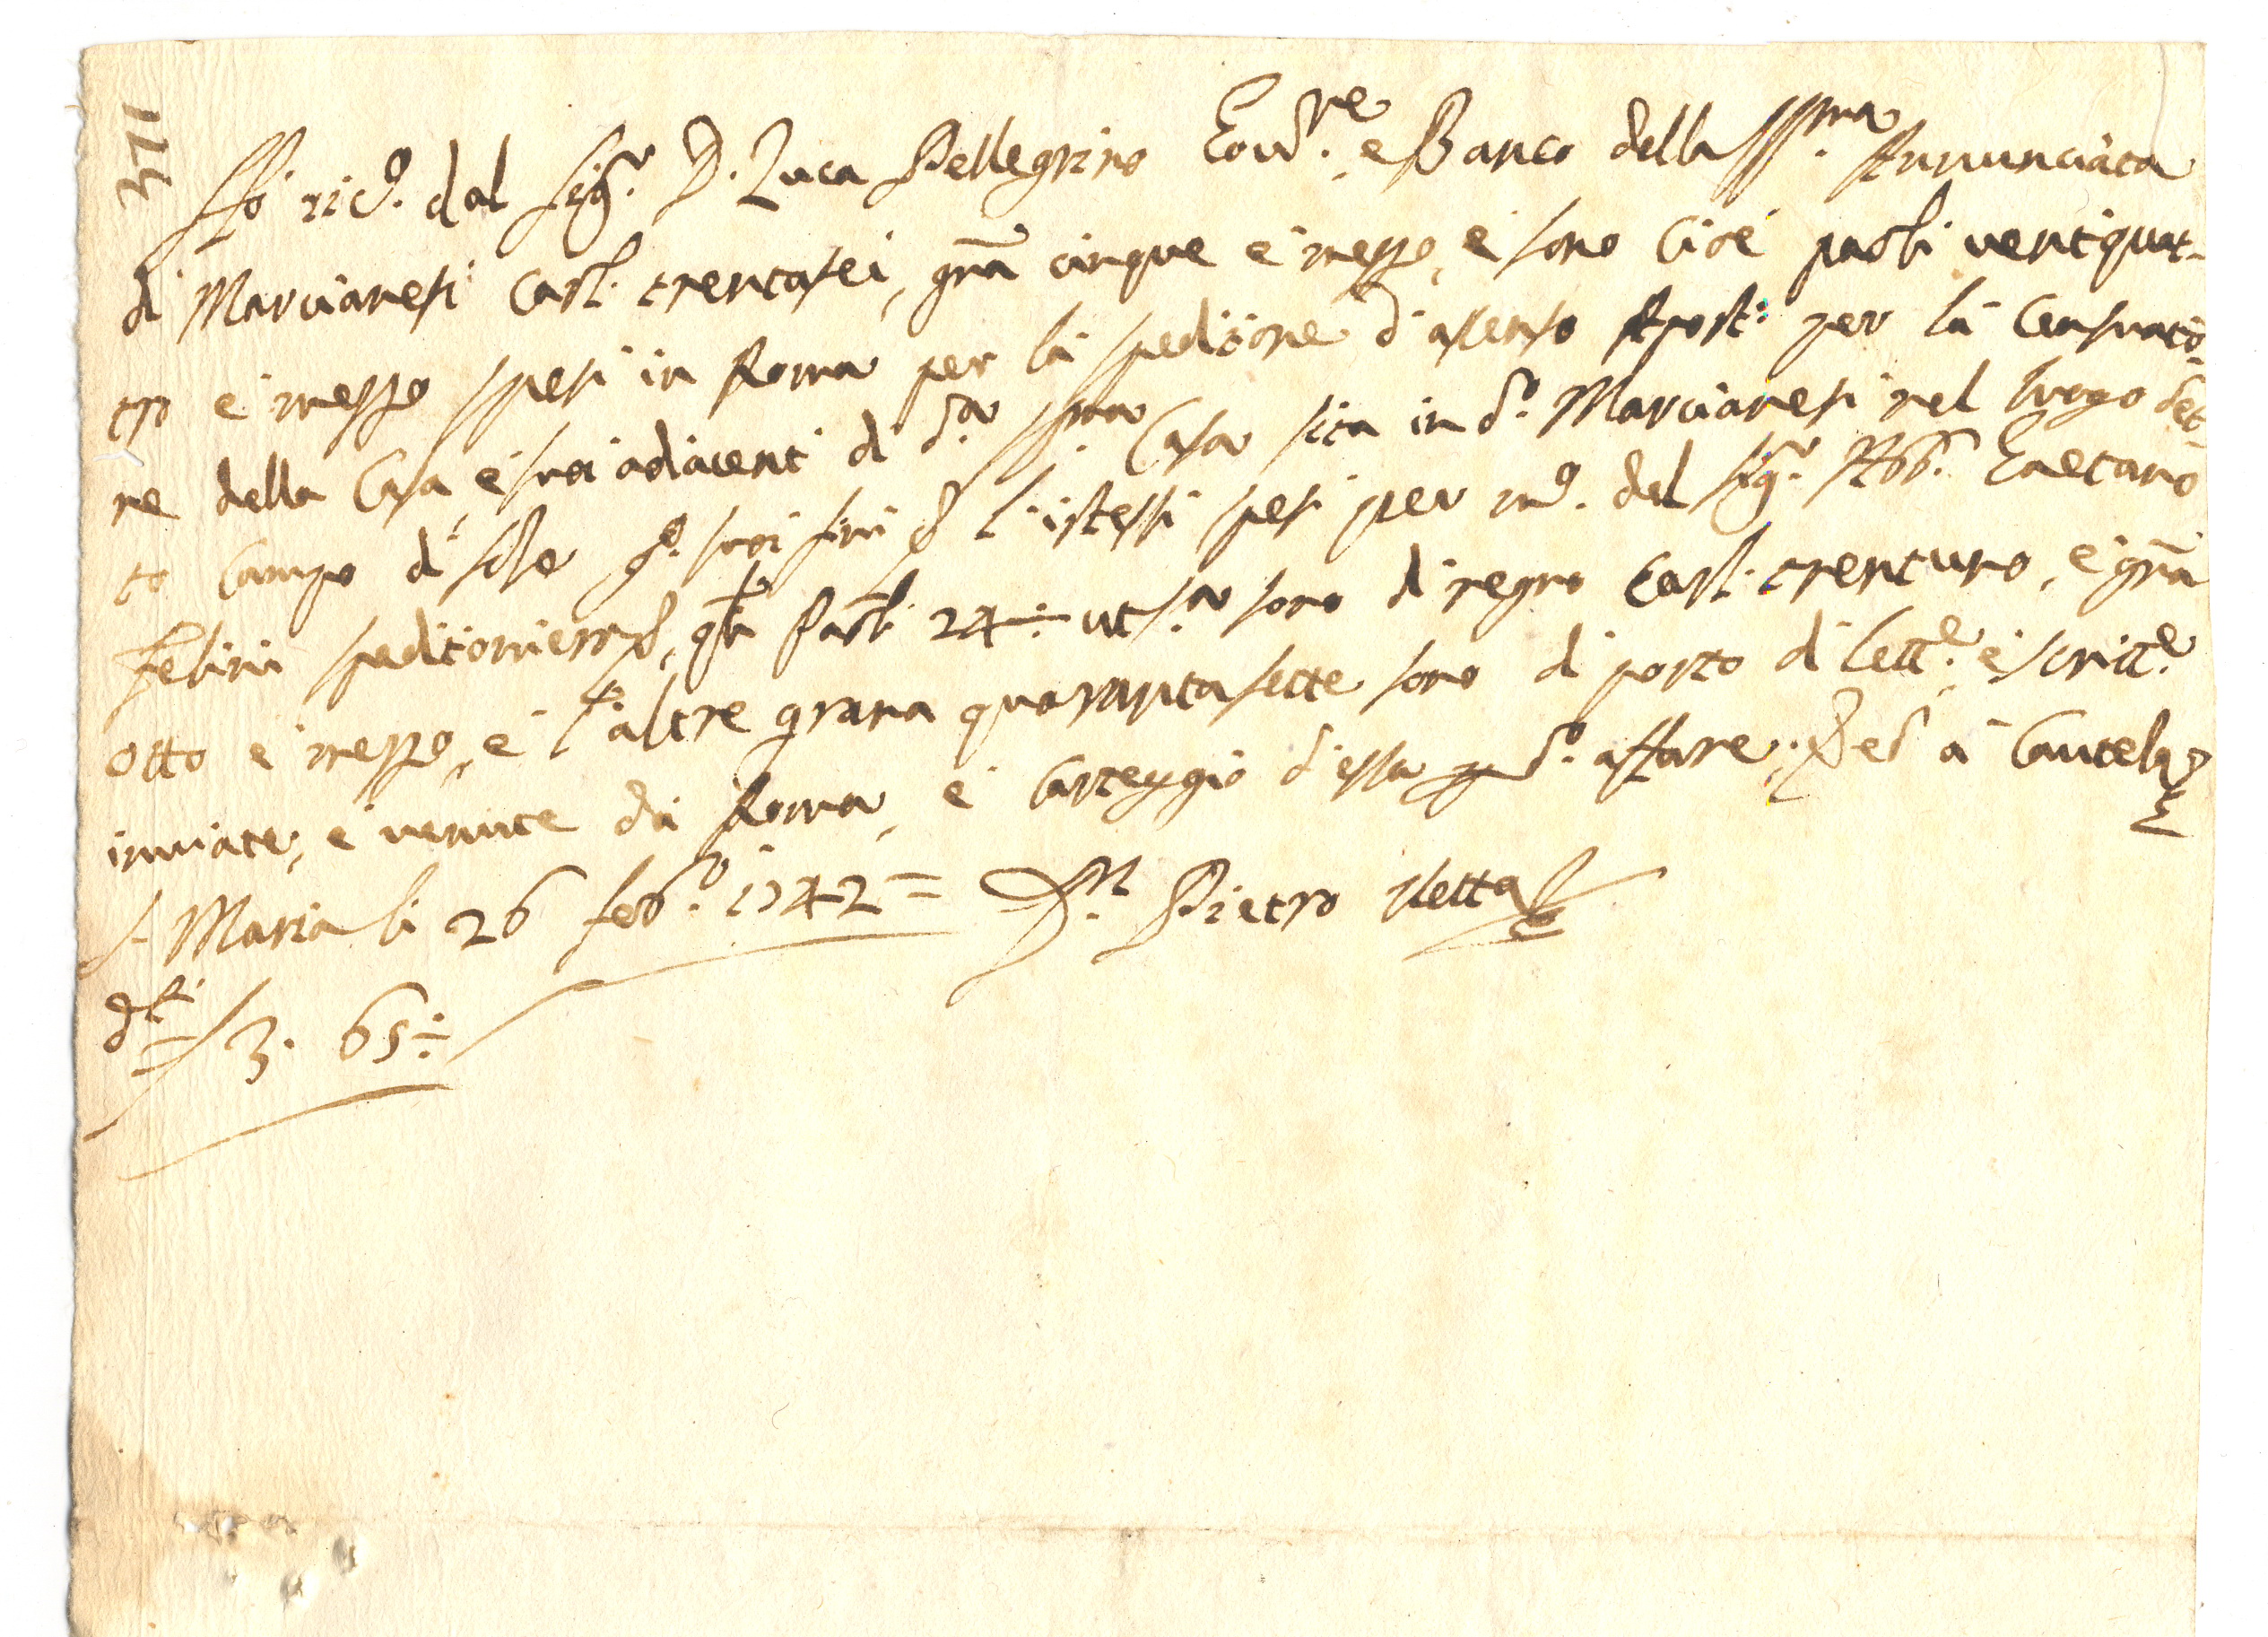 371
Hò ric.o dal Sig.r D. Luca Pellegrino Gov.re e Banco della SS.ma Annunciata
di Marcianesi Carl. trentasei, grã cinque e mezzo, e sono cioè paoli ventiquat-
tro e mezzo spesi in Roma per la spedizione d'assenso Apost.o per la Censuatio-
ne della Casa, e suoi adiacenti di d.a SS.ma Casa sita in d.o Marcianesi nel luogo det-
to Campo di sole suoi fini l'istessi spesi per m.o del Sig.r Abb. Gaetano
Felini speditioniero, q.li Paoli 24 ut s.a sono di regno Carl. trentuno, e grã
otto e mezzo, e l'altre grana quarantasette sono di porto di lett.e e scritt.e
inviate, e venute da Roma, e carteggio d'essa d.o affare; Ed à cautela
S. Maria li 26 feb.o 1742 = D.n Pietro Netta
d.ti 3. 65